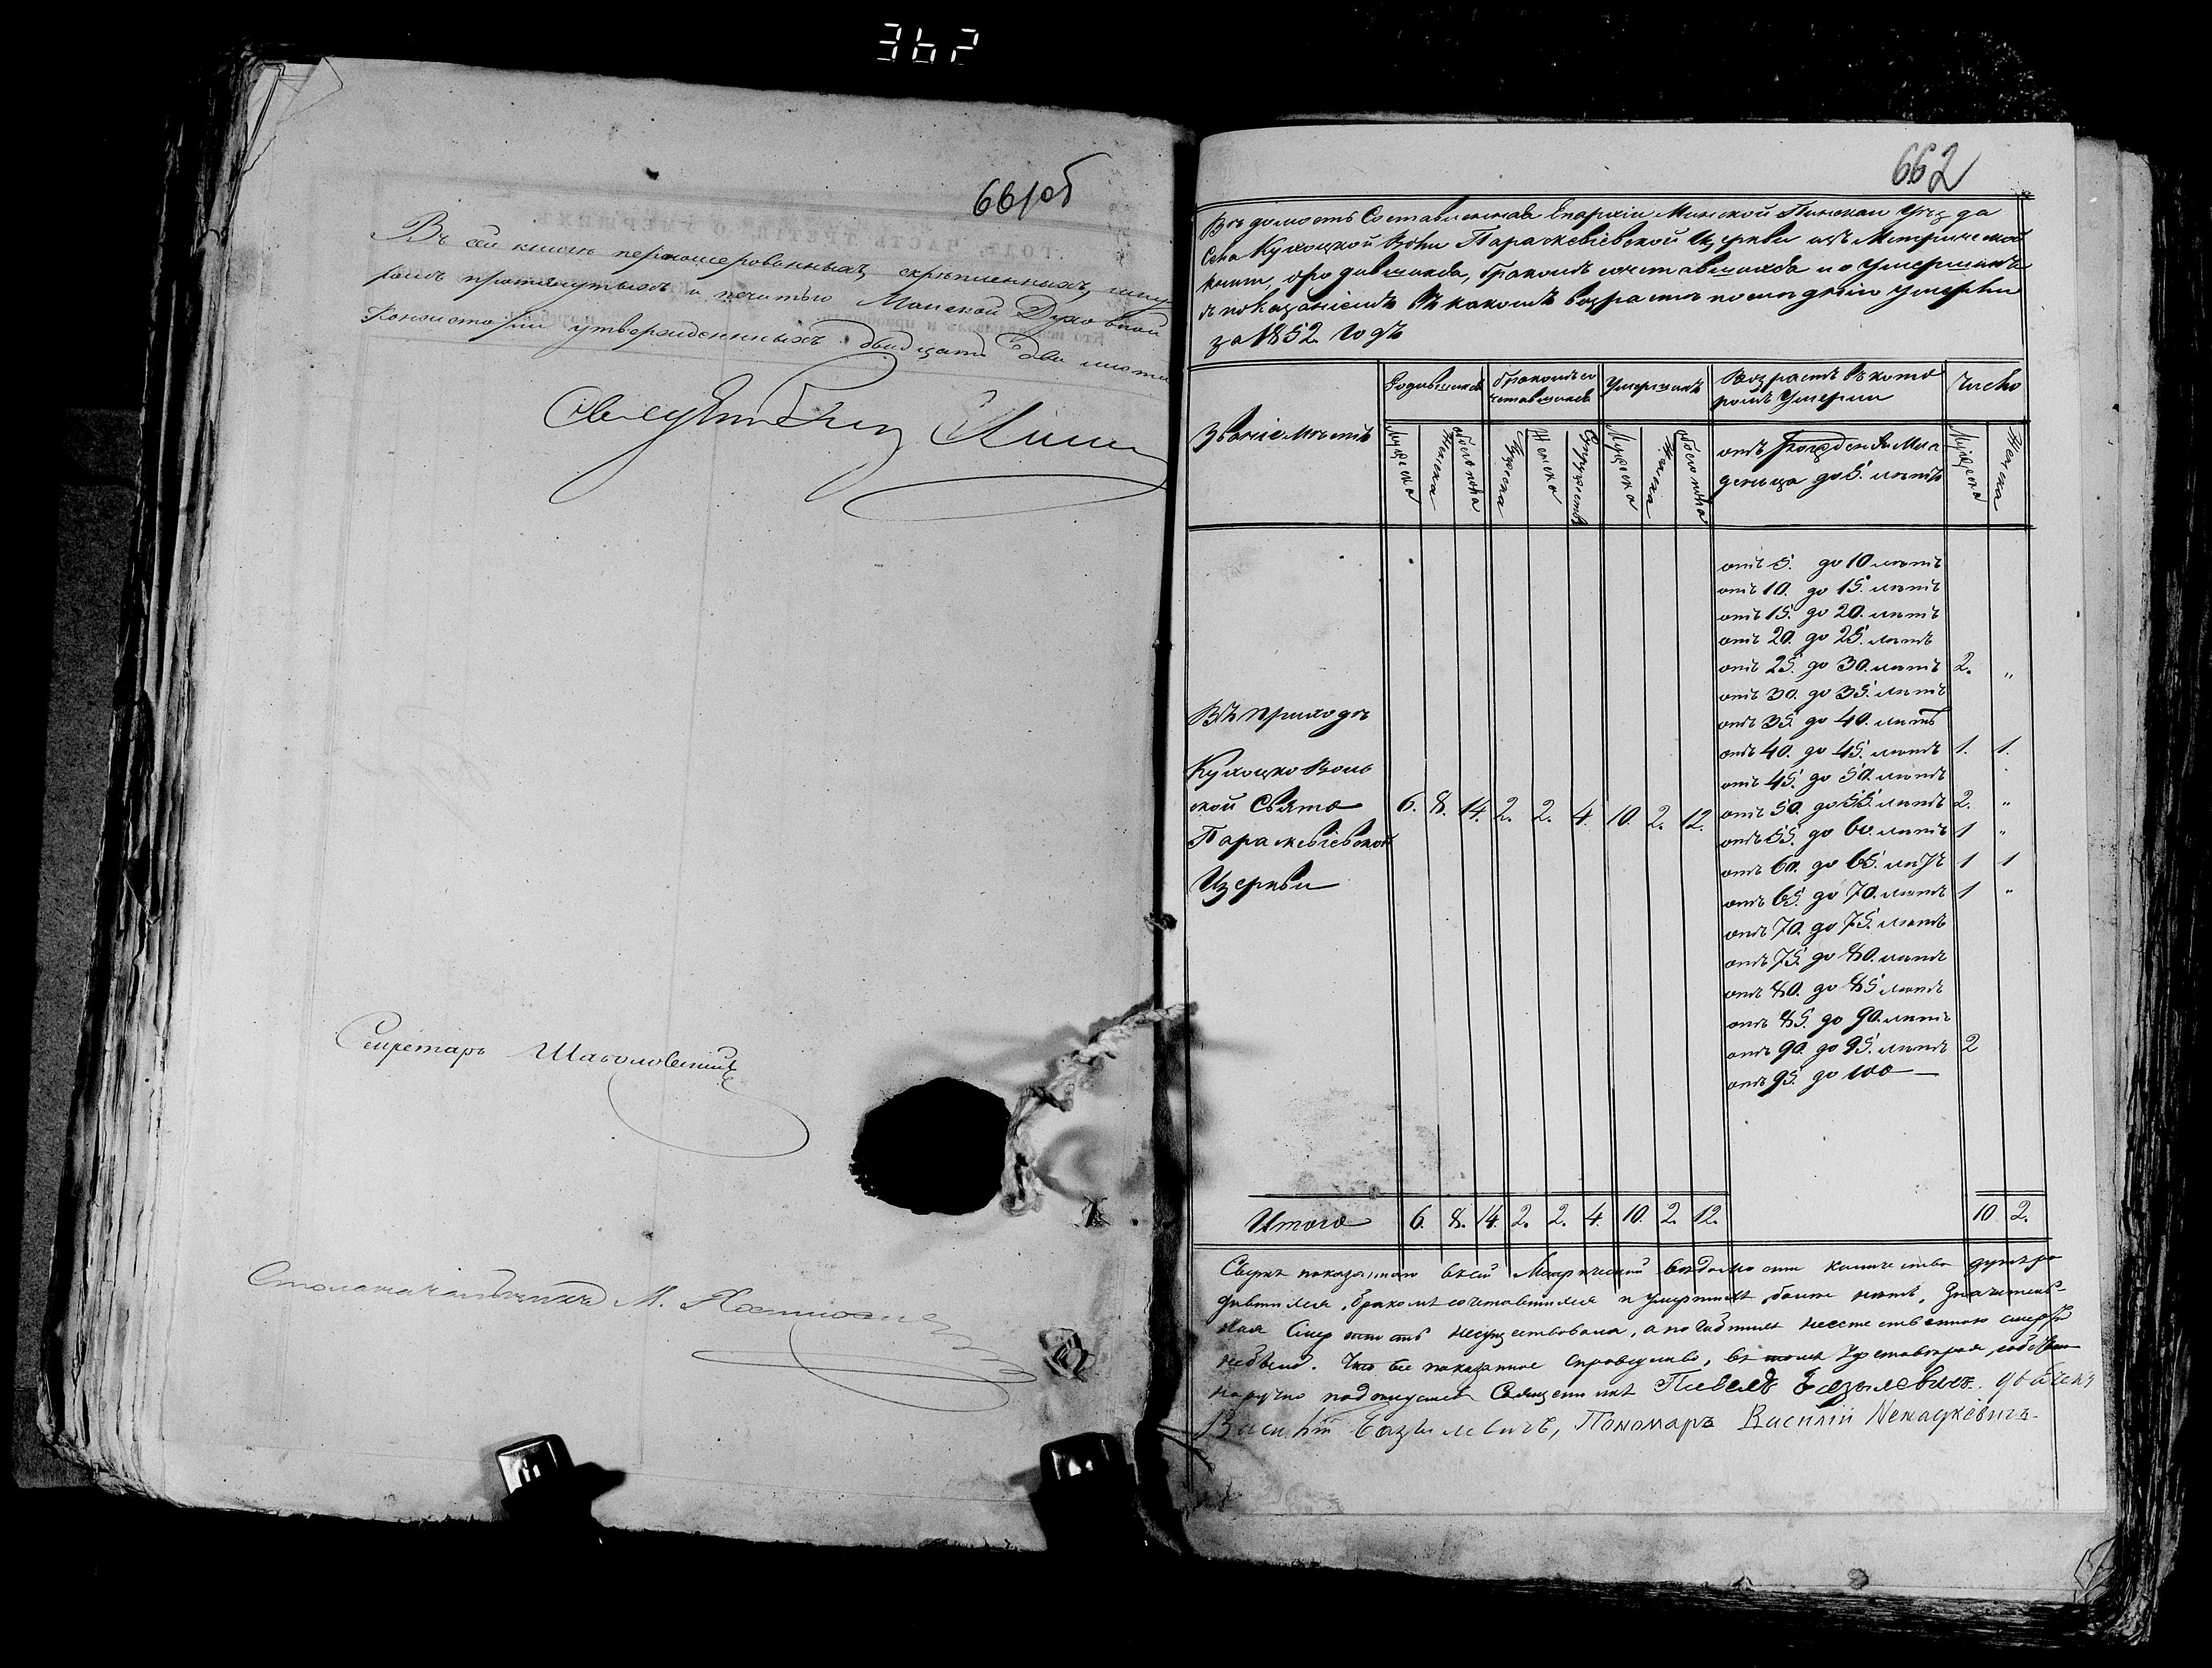 362
661об
Въ сей книгѣ перенумерованныхъ, скрѣпленныхъ, шну-
ромъ протянутыхъ и печатью Минской Духовной
Консисторіи утвержденныхъ двадцать два листа
Секретарь
Столоначальникъ М.
662
Вѣдомость Составленная Епархіи Минской Пинскаго Уѣзда
Села Кухоцкой Воли Параскевіевской Церкви изъ Метрической
книги, о родившихся, бракомъ сочетавшихся и о Умершихъ
съ показаніемъ въ какомъ возрастѣ послѣдніи умерли
за 1852 годъ
Званіе мѣстъ
Родившихся
бракомъ со
четавшихся
Умершихъ
Возрастъ въ кото
ромъ Умерли
Число
Мужеска
Женска
обоего пола
Мужеска
Женска
Супружествъ
Мужеска
Женска
обоего пола
отъ Рожденія Мла
денца до 5. лѣтъ
Мужеска
Женска
отъ 5. до 10 лѣтъ
отъ 10. до 15. лѣтъ
отъ 15. до 20. лѣтъ
отъ 20. до 25. лѣтъ
отъ 25. до 30. лѣтъ 2. "
отъ 30. до 35. лѣтъ
отъ 35. до 40. лѣтъ
отъ 40. до 45. лѣтъ 1. 1.
отъ 45. до 50. лѣтъ
отъ 50. до 55. лѣтъ 2. "
отъ 55. до 60. лѣтъ 1 "
отъ 60. до 65. лѣтъ 1 1
отъ 65. до 70. лѣтъ 1 "
отъ 70. до 75. лѣтъ
отъ 75. до 80. лѣтъ
отъ 80. до 85 лѣтъ
отъ 85. до 90. лѣтъ
отъ 90. до 95. лѣтъ 2
отъ 95. до 100
Въ приходѣ
Кухоцко Воль
ской Свято
Параскевіевской
Церкви
6. 8. 14. 2. 2. 4. 10. 2. 12.
Итого 6. 8. 14. 2. 2. 4. 10. 2. 12. 10 2.
Сверхъ показаннаго въ сей Метрической вѣдомости количества душъ ро
дившихся, бракомъ сочетавшихся и умершихъ болѣе нѣтъ, Значитель-
ная Смертность несуществовала, а погибшихъ неестественною смертію
небыло. Что все показанное справедливо, въ томъ удостовѣряя, собствен
норучно подписуемся Священникъ Павелъ Базылевичъ.
Базылевичъ, Пономарь Василій